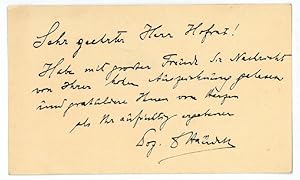 Sehr geehrter Herr Hofrat!
Habe mit großer Freude die Nachricht
von Ihrer hohen Auszeichnung gelesen
und gratuliere Ihnen von Herzen
als Ihr aufrichtig ergebener
Doz.